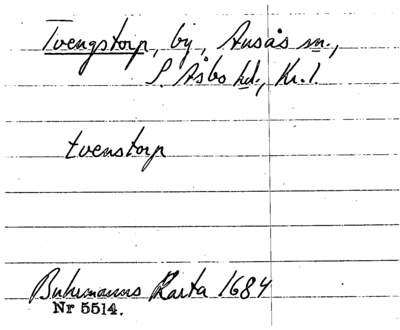 Tvengstorp, by, Ausås sn.,
S. Åsbo hd., Kr. l.
tvenstorp
Buhrmanns Karta 1684
Nr 5514.